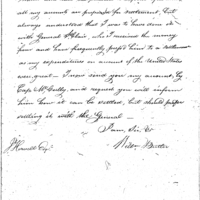 all my accounts are prepared for settlement, but
always understood that I was to have done it
with General St Clair, who I received the money
from and have frequently pressed him to a settlement
as my expenditures on account of the United States
were great — I now send you my account, by
Capt McCully and request you will inform
him how it can be settled, but should prefer
settling it with the General —
I am, Sir, &c
Richd Butler
J Howell Esqr